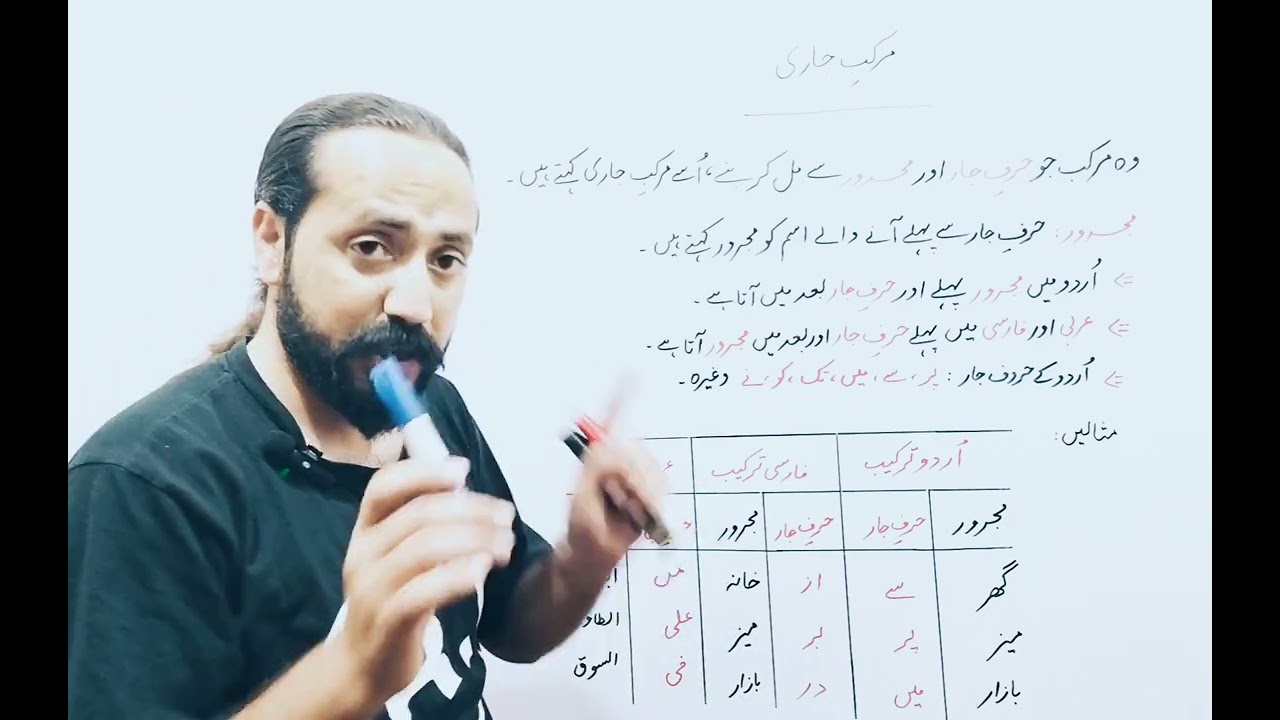 مرکبِ جاری
وہ مرکب جو حرفِ جار اور مجرور سے مل کر بنے، اُسے مرکبِ جاری کہتے ہیں۔
مجرور: حرفِ جار سے پہلے آنے والے اسم کو مجرور کہتے ہیں۔
اُردو میں مجرور پہلے اور حرفِ جار بعد میں آتا ہے۔
عربی اور فارسی میں پہلے حرفِ جار اور بعد میں مجرور آتا ہے۔
اُردو کے حروف جار: پر، سے، میں، تک، کو، نے وغیرہ۔
مثالیں:
اُردو ترکیب فارسی ترکیب
مجرور حرفِ جار حرفِ جار مجرور
گھر سے از خانہ من
میز پر بر میز علی
بازار میں در بازار فی السوق